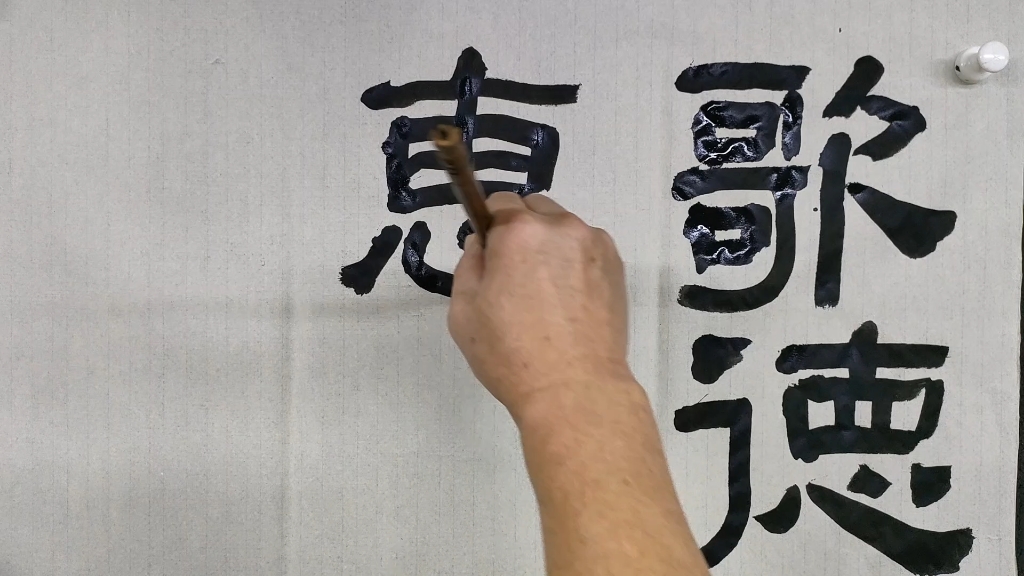 歌德
惠